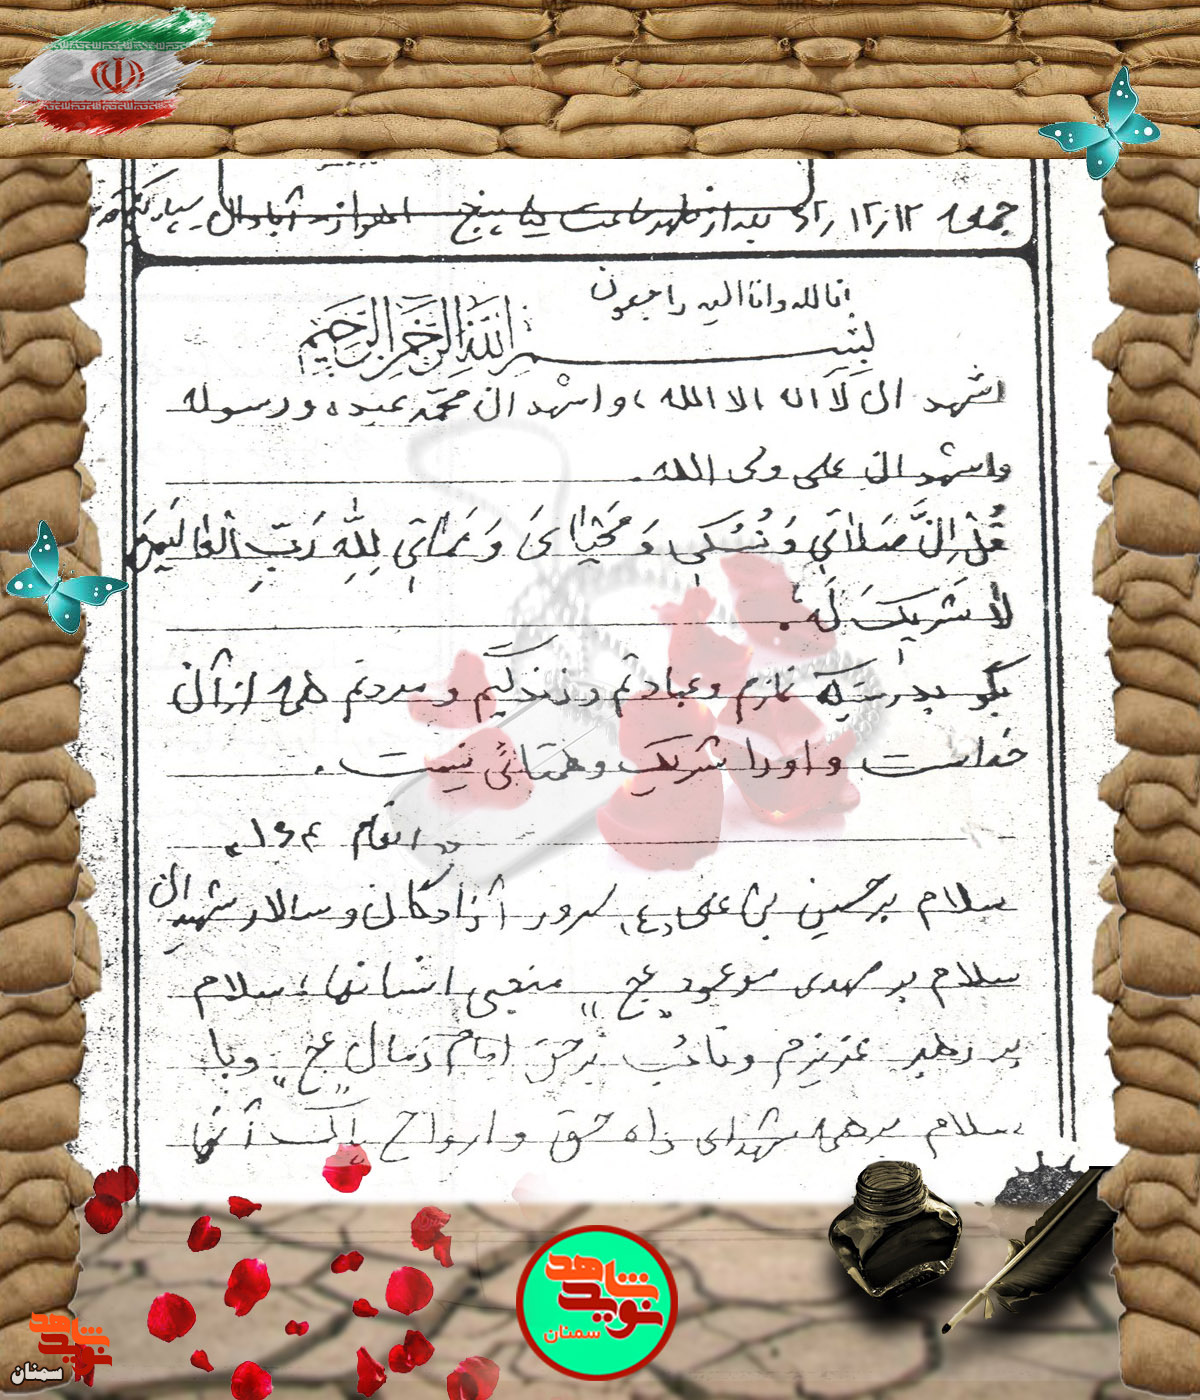 جمعه ۱۲ر۱۲ر بعد از ظهر ساعت پنج اهواز
انا لله وانا الیه راجعون
بِسْمِ اللهِ الرَّحْمنِ الرَّحیم
اشهد ان لَا اله الا الله ، و اشهد ان محمّد عبده و رسوله
و اشهد ان علی ولی الله .
قُلْ اِنَّ صَلاتی وَ نُسُکی وَ مَحْیایَ وَ مَماتی لِلّٰهِ رَبِّ العالَمینَ
لا شَریکَ لَه .
بگو بدرستیکه نمازم و عبادتم و زندگیم و مردنم همه از آن
خداست و او را شریک و همتائی نیست .
سلام بر حسین بن علی (ع) سرور آزادگان و سالار شهیدان
سلام بر مهدی موعود "عج" منجی انسانها ، سلام
بر رهبر عزیزم و نائب برحق امام زمان "عج" و با
سلام بر همه شهدای راه حق و ارواح پاک آنها
نوید شاهد
سمنان
نوید شاهد
سمنان